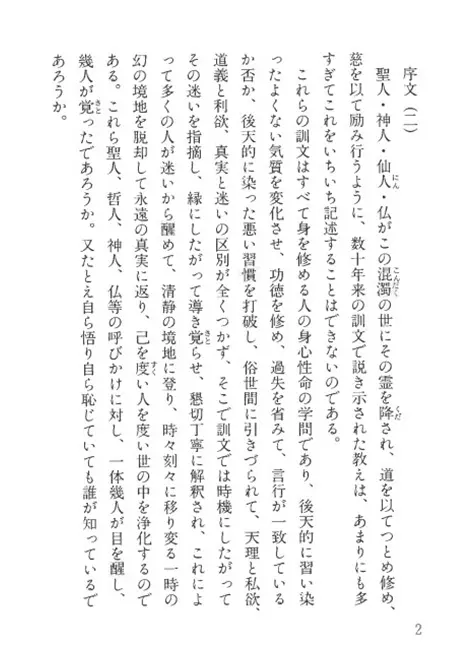 序文(二)
聖人・神人・仙人・仏がこの混濁の世にその霊を降され、道を以てつとめ修め、
慈を以て励み行うように、数十年来の訓文で説き示された教えは、あまりにも多
すぎてこれをいちいち記述することはできないのである。
これらの訓文はすべて身を修める人の身心性命の学問であり、後天的に習い染
ったよくない気質を変化させ、功徳を修め、過失を省みて、言行が一致している
か否か、後天的に染った悪い習慣を打破し、俗世間に引きづられて、天理と私欲、
道義と利欲、真実と迷いの区別が全くつかず、そこで訓文では時機にしたがって
その迷いを指摘し、縁にしたがって導き覚らせ、懇切丁寧に解釈され、これによ
って多くの人が迷いから醒めて、清静の境地に登り、時々刻々に移り変る一時の
幻の境地を脱却して永遠の真実に返り、己を度い人を度い世の中を浄化するので
ある。これら聖人、哲人、神人、仏等の呼びかけに対し、一体幾人が目を醒し、
幾人が覚ったであろうか。又たとえ自ら悟り自ら恥じていても誰が知っているで
あろうか。
2